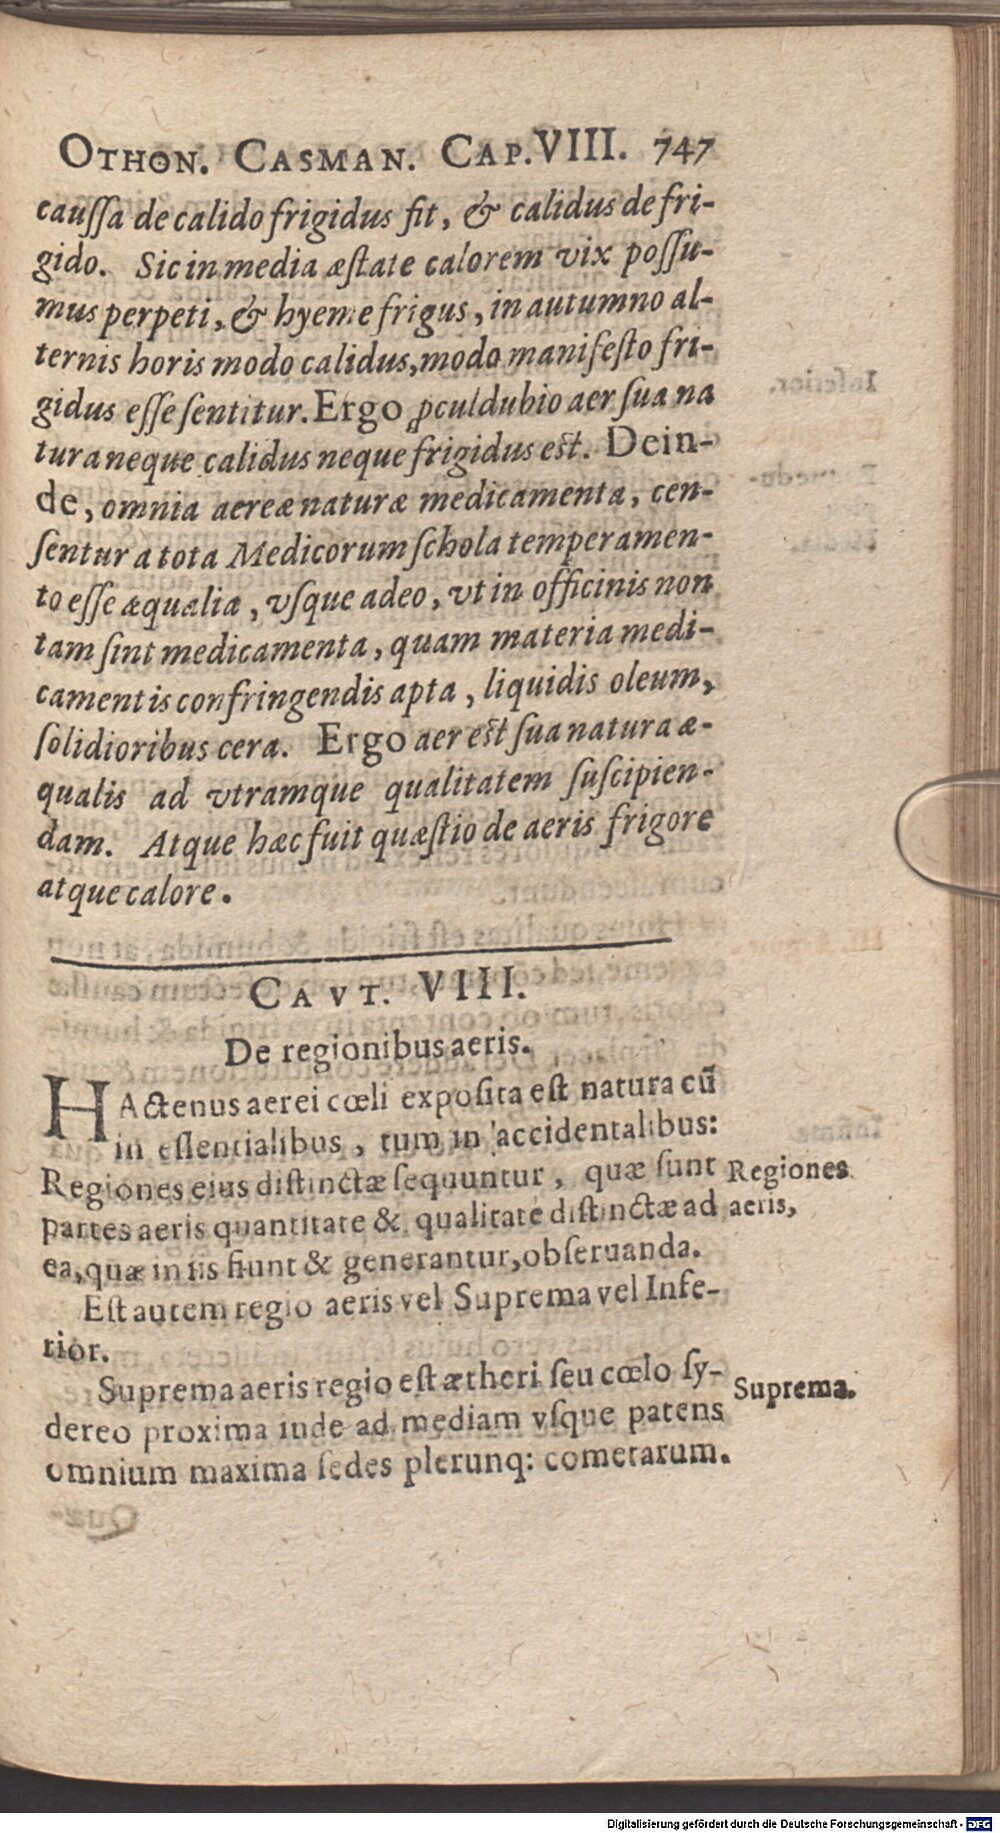 OTHON. CASMAN. CAP. VIII. 747
cauſſa de calido frigidus fit, & calidus de fri-
gido. Sic in media æſtate calorem vix poſſu-
mus perpeti, & hyeme frigus, in autumno al-
ternis horis modo calidus, modo manifeſto fri-
gidus eſſe ſentitur. Ergo ꝓculdubio aer ſua na
tura neque calidus neque frigidus est. Dein-
de, omnia aereæ naturæ medicamenta, cen-
ſentur a tota Medicorum ſchola temperamen-
to eſſe æqualia, vſque adeo, vt in officinis non
tam ſint medicamenta, quam materia medi-
camentis confringendis apta, liquidis oleum,
ſolidioribus cera. Ergo aer est ſua natura æ-
qualis ad vtramque qualitatem ſuſcipien-
dam. Atque hæc fuit quæſtio de aeris frigore
atque calore.
CAVT. VIII.
De regionibus aeris.
HActenus aerei cœli expoſita eſt natura cū
in eſſentialibus, tum in accidentalibus:
Regiones eius diſtinctæ ſequuntur, quæ ſunt
partes aeris quantitate & qualitate diſtinctæ ad
ea, quæ in iis fiunt & generantur, obſeruanda.
Regiones
aeris,
Eſt autem regio aeris vel Suprema vel Infe-
rior.
Suprema aeris regio eſt ætheri ſeu cœlo ſy-
dereo proxima inde ad mediam vſque patens
omnium maxima ſedes plerunq: cometarum.
Suprema.
Digitalisierung gefördert durch die Deutsche Forschungsgemeinschaft - DFG